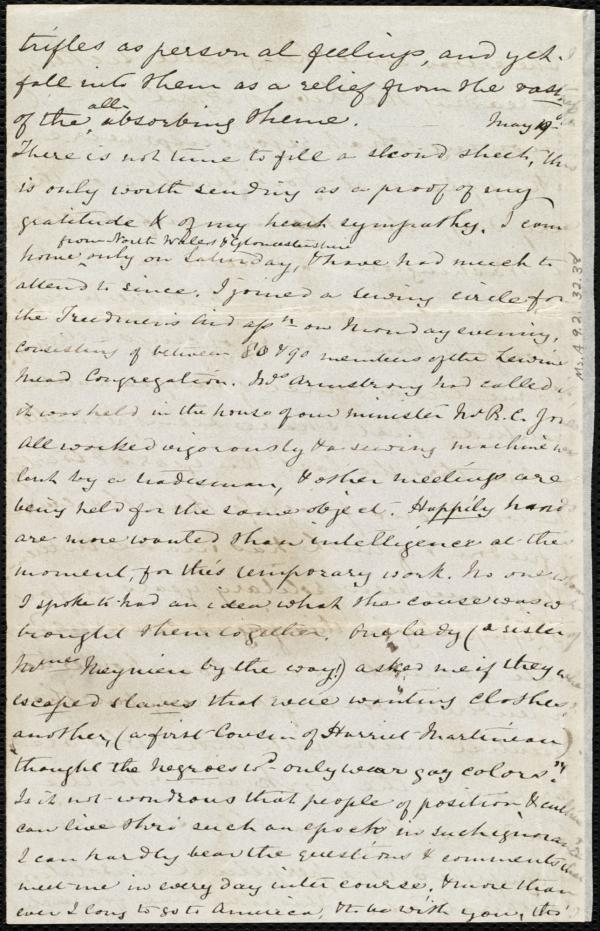 trifles as personal feelings, and yet I
fall into them as a relief from the vast
of the all absorbing theme. May 19th
There is not time to fill a second sheet, this
is only worth sending as a proof of my
gratitude & of my heart sympathy. I came
from North Wales & Gloucestershire
home only on Saturday, & have had much to
attend to since. I joined a sewing circle for
the Freedmen's Aid assn on Monday evening,
consisting of between 80 & 90 members of the Lewins
Mead Congregation. Mrs Armstrong had called it
it was held in the house of our minister Mr R. C. Jones
All worked vigorously & a sewing machine was
lent by a tradesman, & other meetings are
being held for the same object. Happily hands
are more wanted than intelligence at the
moment, for this temporary work. No one whom
I spoke to had an idea what the cause was wh
brought them together. One lady (a sister
to Mme Meynieu by the way!) asked me if they were
escaped slaves that were wanting clothes,
another, (a first Cousin of Harriet Martineau)
"thought the negroes wd only wear gay colors"!
Is it not wondrous that people of position & culture
can live thro' such an epoch in such ignorance
I can hardly bear the questions & comments that
meet me in every day intercourse, & more than
ever I long to go to America, & to be with you, tho'
Ms. A. 9. 2. 32. 38